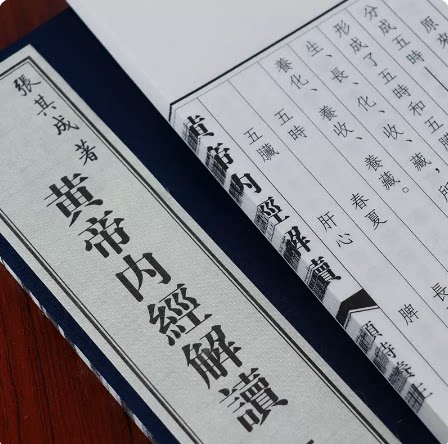 張其成著
黄帝内經解讀
原來
分成五時
形成了五時和五藏，
生、長、化、收、藏。
養化、養收、養藏。
五時 春夏 長
五臟 肝心 脾
黄帝内經解讀
順時養生